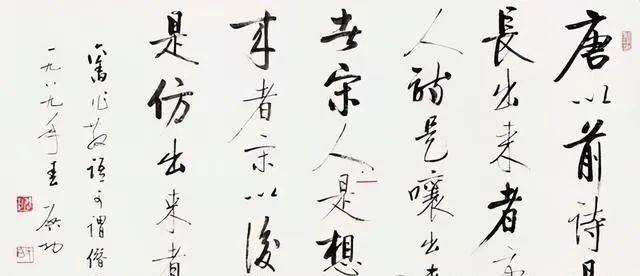 唐以前詩是
長出来者唐
人詩是嚷出来
者宋人是想
来者宋以後
是仿出来者
舊作 語可謂僭
一九八九年春 啟功